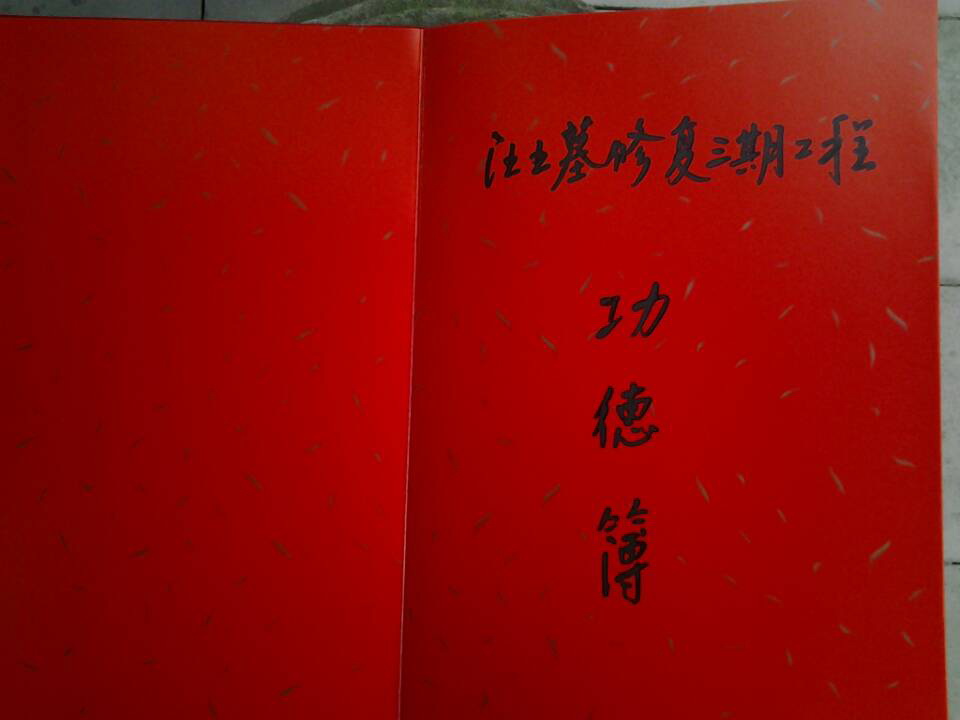 汪王墓修复三期工程
功
德
簿